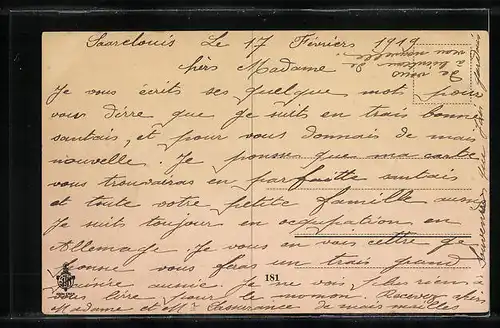 Saarclouis Le 17 Févriers 1919
chèrs Madame
Je vous écrits ses quelque mot pour
vous dirre que je suits en trais bonne
santais, et pour vous donnais de mais
nouvelle. Je pensse que ma carte
vous trouvairas en parfaitte santais
et toute votre petite famille aussi
Je suits toujour en occupation en
Allemage. Je vous en vais cettre
bonne vous feras un trais grand
aussie. Je ne vois plus rien à
vous dire pour le moman. Recevez chers
Madame et Mr l'assurance de mais
181
Je vous
à bientau de
vou nouvelle